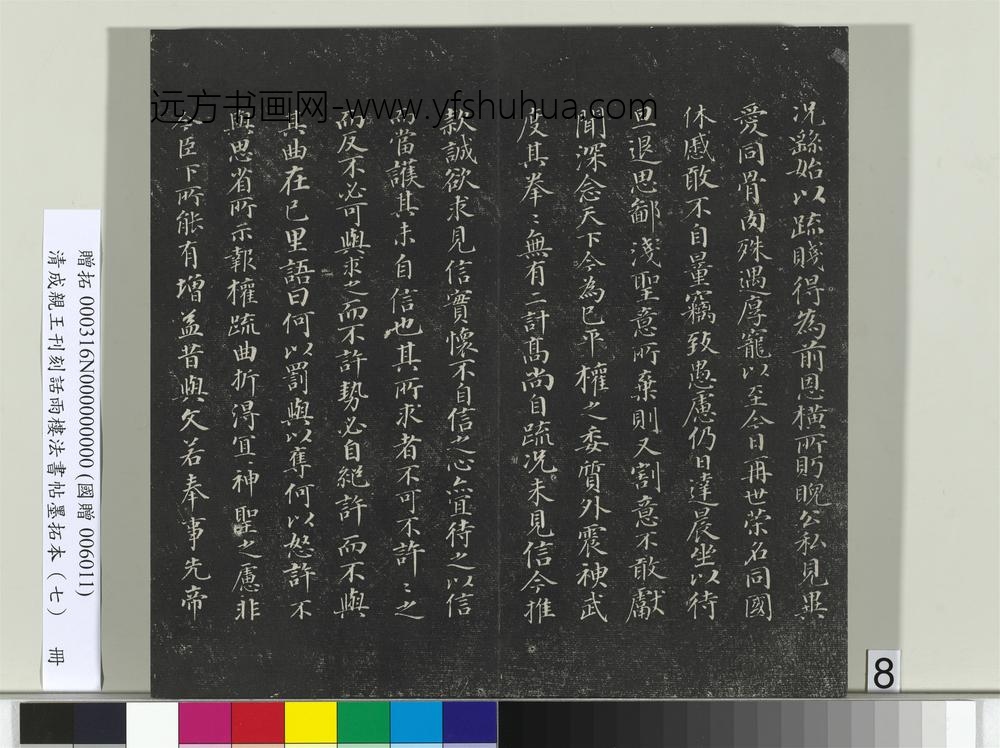 远方书画网-www.yfshuhua.com
况繇始以疏賤得為前恩橫所盻睨公私見異
愛同骨肉殊遇厚寵以至今日再世荣名同國
休慼敢不自量竊致愚慮仍日達晨坐以待
旦退思鄙淺聖意所棄則又割意不敢獻
聞深念天下今為已平權之委質外震神武
度其拳〻無有二計高尚自疏况未見信今推
款誠欲求見信實懷不自信之心亦宜待之以信
而當護其未自信也其所求者不可不許〻之
而反不必可與求之而不許勢必自絕許而不與
其曲在己里語曰何以罰與以奪何以怒許不
與思省所示報權疏曲折得宜神聖之慮非
今臣下所能有增益昔與文若奉事先帝
贈拓 000316N000000000(國贈 006011)
清成親王刊刻話雨樓法書帖墨拓本（七） 冊
8